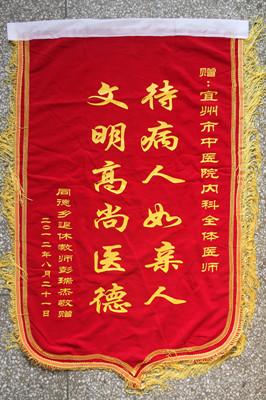 赠：宜州市中医院内科全体医师
待病人如亲人
文明高尚医德
同德乡退休教师彭瑞杰敬赠
二〇一二年八月二十一日